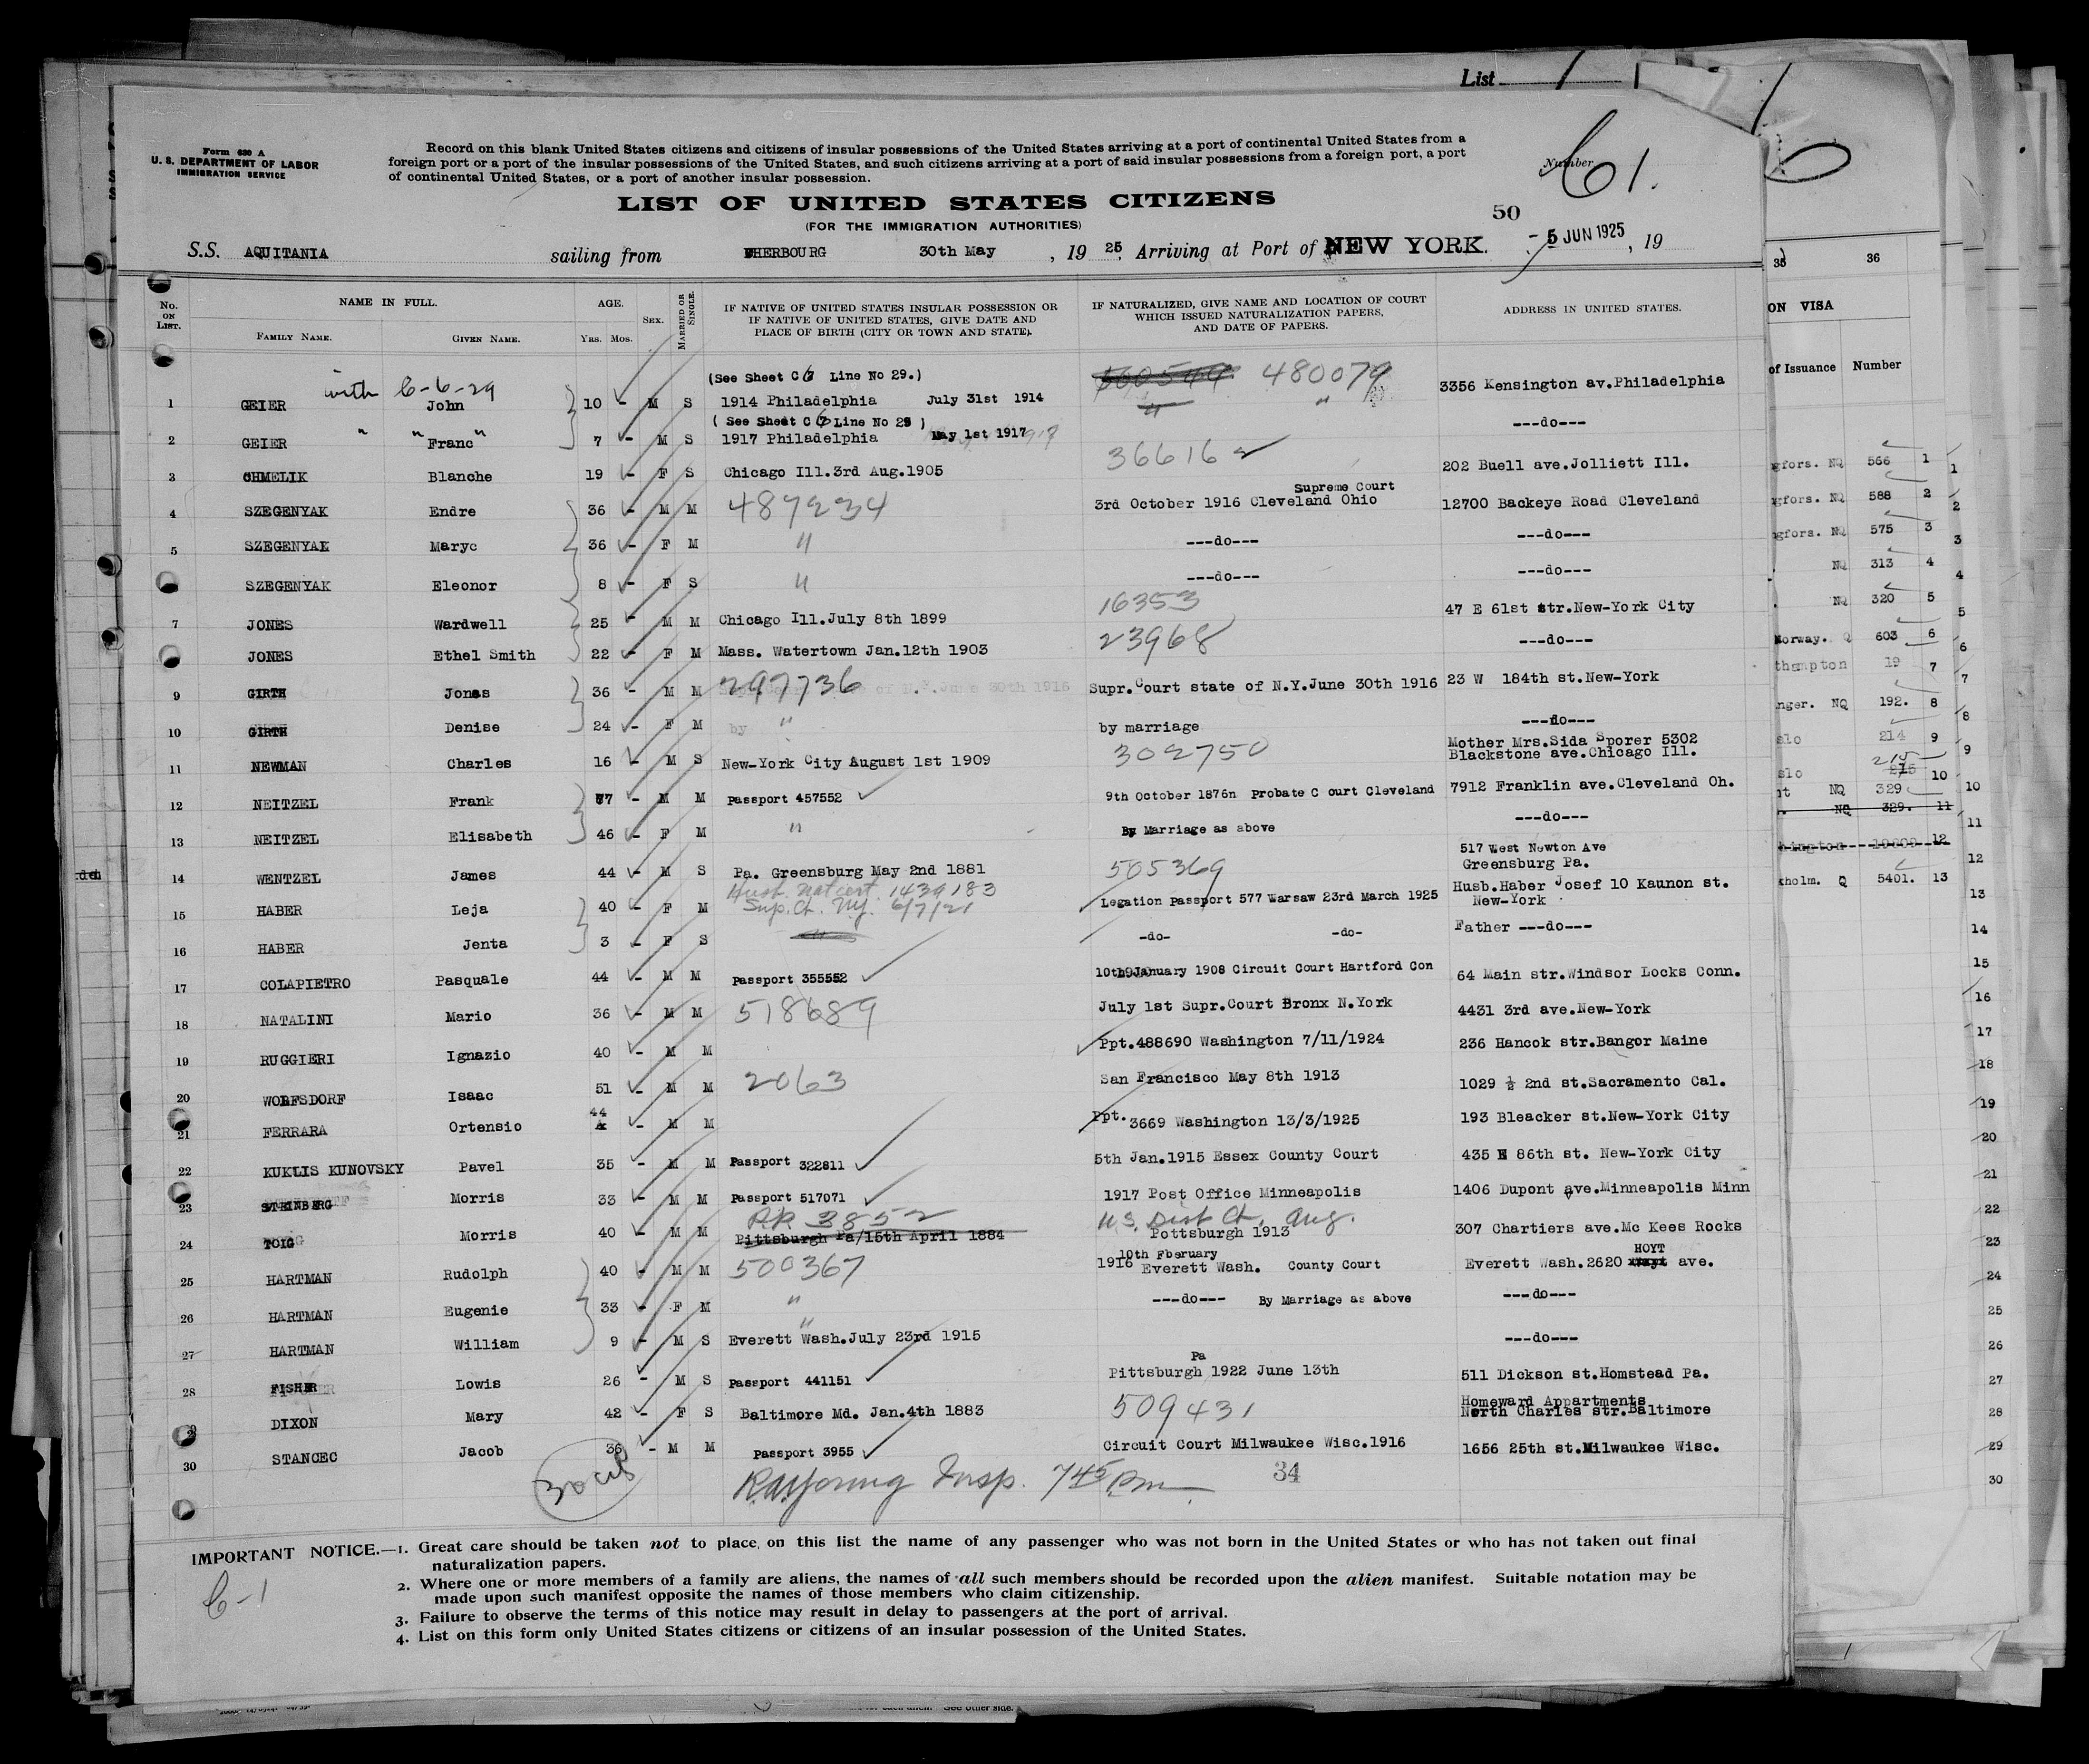 List
Form 630 A
U. S. DEPARTMENT OF LABOR
IMMIGRATION SERVICE
Record on this blank United States citizens and citizens of insular possessions of the United States arriving at a port of continental United States from a
foreign port or a port of the insular possessions of the United States, and such citizens arriving at a port of said insular possessions from a foreign port, a port
of continental United States, or a port of another insular possession.
Number
61.
LIST OF UNITED STATES CITIZENS
(FOR THE IMMIGRATION AUTHORITIES)
50
S.S. AQUITANIA sailing from CHERBOURG 30th May , 19 25, Arriving at Port of NEW YORK. - 5 JUN 1925 , 19
No. ON LIST. NAME IN FULL. FAMILY NAME. GIVEN NAME. AGE. Yrs. Mos. SEX. MARRIED OR SINGLE. IF NATIVE OF UNITED STATES INSULAR POSSESSION OR IF NATIVE OF UNITED STATES, GIVE DATE AND PLACE OF BIRTH (CITY OR TOWN AND STATE). IF NATURALIZED, GIVE NAME AND LOCATION OF COURT WHICH ISSUED NATURALIZATION PAPERS, AND DATE OF PAPERS. ADDRESS IN UNITED STATES.
with C-6-29 (See Sheet C 6 Line No 29.) 480079
1 GEIER John 10 - M S 1914 Philadelphia July 31st 1914 " 3356 Kensington av.Philadelphia
" " " ( See Sheet C 6 Line No 29 )
2 GEIER Franc 7 - M S 1917 Philadelphia May 1st 1917 ---do---
3 CHMELIK Blanche 19 - F S Chicago Ill.3rd Aug.1905 366162 202 Buell ave.Jolliett Ill.
4 SZEGENYAK Endre 36 - M M 487234 3rd October 1916 Cleveland Ohio Supreme Court 12700 Backeye Road Cleveland
5 SZEGENYAK Maryc 36 - F M " ---do--- ---do---
SZEGENYAK Eleonor 8 - F S " ---do--- ---do---
7 JONES Wardwell 25 - M M Chicago Ill.July 8th 1899 16353 47 E 61st str.New-York City
JONES Ethel Smith 22 - F M Mass. Watertown Jan.12th 1903 23968 ---do---
9 GIRTH Jonas 36 - M M 297736 Supr.Court state of N.Y.June 30th 1916 23 W 184th st.New-York
10 GIRTH Denise 24 - F M " by marriage ---do---
11 NEWMAN Charles 16 - M S New-York City August 1st 1909 302750 Mother Mrs.Sida Sporer 5302 Blackstone ave.Chicago Ill.
12 NEITZEL Frank 77 - M M Passport 457552 9th October 1876n Probate C ourt Cleveland 7912 Franklin ave.Cleveland Oh.
13 NEITZEL Elisabeth 46 - F M " By Marriage as above ---do---
14 WENTZEL James 44 - M S Pa. Greensburg May 2nd 1881 505369 517 West Newton Ave Greensburg Pa.
Husb. Nat cert. 1439183
15 HABER Leja 40 - F M Sup. Ct. N.Y. 6/7/21 Legation Passport 577 Warsaw 23rd March 1925 Husb.Haber Josef 10 Kaunon st. New-York
16 HABER Jenta 3 - F S -do- -do- Father ---do---
17 COLAPIETRO Pasquale 44 - M M Passport 355552 10th January 1908 Circuit Court Hartford Con 64 Main str.Windsor Locks Conn.
18 NATALINI Mario 36 - M M 518689 July 1st Supr.Court Bronx N.York 4431 3rd ave.New-York
19 RUGGIERI Ignazio 40 - M M Ppt.488690 Washington 7/11/1924 236 Hancok str.Bangor Maine
20 WOLFSDORF Isaac 51 - M M 2063 San Francisco May 8th 1913 1029 ½ 2nd st.Sacramento Cal.
21 FERRARA Ortensio 44 - M M Ppt. 3669 Washington 13/3/1925 193 Bleacker st.New-York City
22 KUKLIS KUNOVSKY Pavel 35 - M M Passport 322811 5th Jan.1915 Essex County Court 435 E 86th st. New-York City
23 STEINBERG Morris 33 - M M Passport 517071 1917 Post Office Minneapolis 1406 Dupont ave.Minneapolis Minn
RR 3852 U.S. Dist Ct. Aug.
24 TOIG Morris 40 - M M Pittsburgh Pa/15th April 1884 Pottsburgh 1913 307 Chartiers ave.Mc Kees Rocks
25 HARTMAN Rudolph 40 - M M 500367 10th Fberuary 1916 Everett Wash. County Court Everett Wash.2620 HOYT ave.
26 HARTMAN Eugenie 33 - F M " ---do--- By Marriage as above ---do---
27 HARTMAN William 9 - M S " Everett Wash.July 23rd 1915 ---do---
28 FISHER Lowis 26 - M S Passport 441151 Pittsburgh Pa 1922 June 13th 511 Dickson st.Homstead Pa.
DIXON Mary 42 - F S Baltimore Md. Jan.4th 1883 509431 Homeward Appartments North Charles str.Baltimore
30 STANCEC Jacob 36 - M M Passport 3955 Circuit Court Milwaukee Wisc.1916 1656 25th st.Milwaukee Wisc.
Insp. 745 Pm 34
IMPORTANT NOTICE.—1. Great care should be taken not to place on this list the name of any passenger who was not born in the United States or who has not taken out final
naturalization papers.
2. Where one or more members of a family are aliens, the names of all such members should be recorded upon the alien manifest. Suitable notation may be
made upon such manifest opposite the names of those members who claim citizenship.
3. Failure to observe the terms of this notice may result in delay to passengers at the port of arrival.
4. List on this form only United States citizens or citizens of an insular possession of the United States.
C-1
See other side.
35 36
ON VISA
of Issuance Number
gfors. NQ 566 1
gfors. NQ 588 2
gfors. NQ 575 3
NQ 313 4
NQ 320 5
Norway. Q 603 6
thampton 19 7
nger. NQ 192. 8
slo 214 9
slo 215 10
nt NQ 329
NQ 329. 11
hington 12
kholm. Q 5401. 13
1
2
3
4
5
6
7
8
9
10
11
12
13
14
15
16
17
18
19
20
21
22
23
24
25
26
27
28
29
30